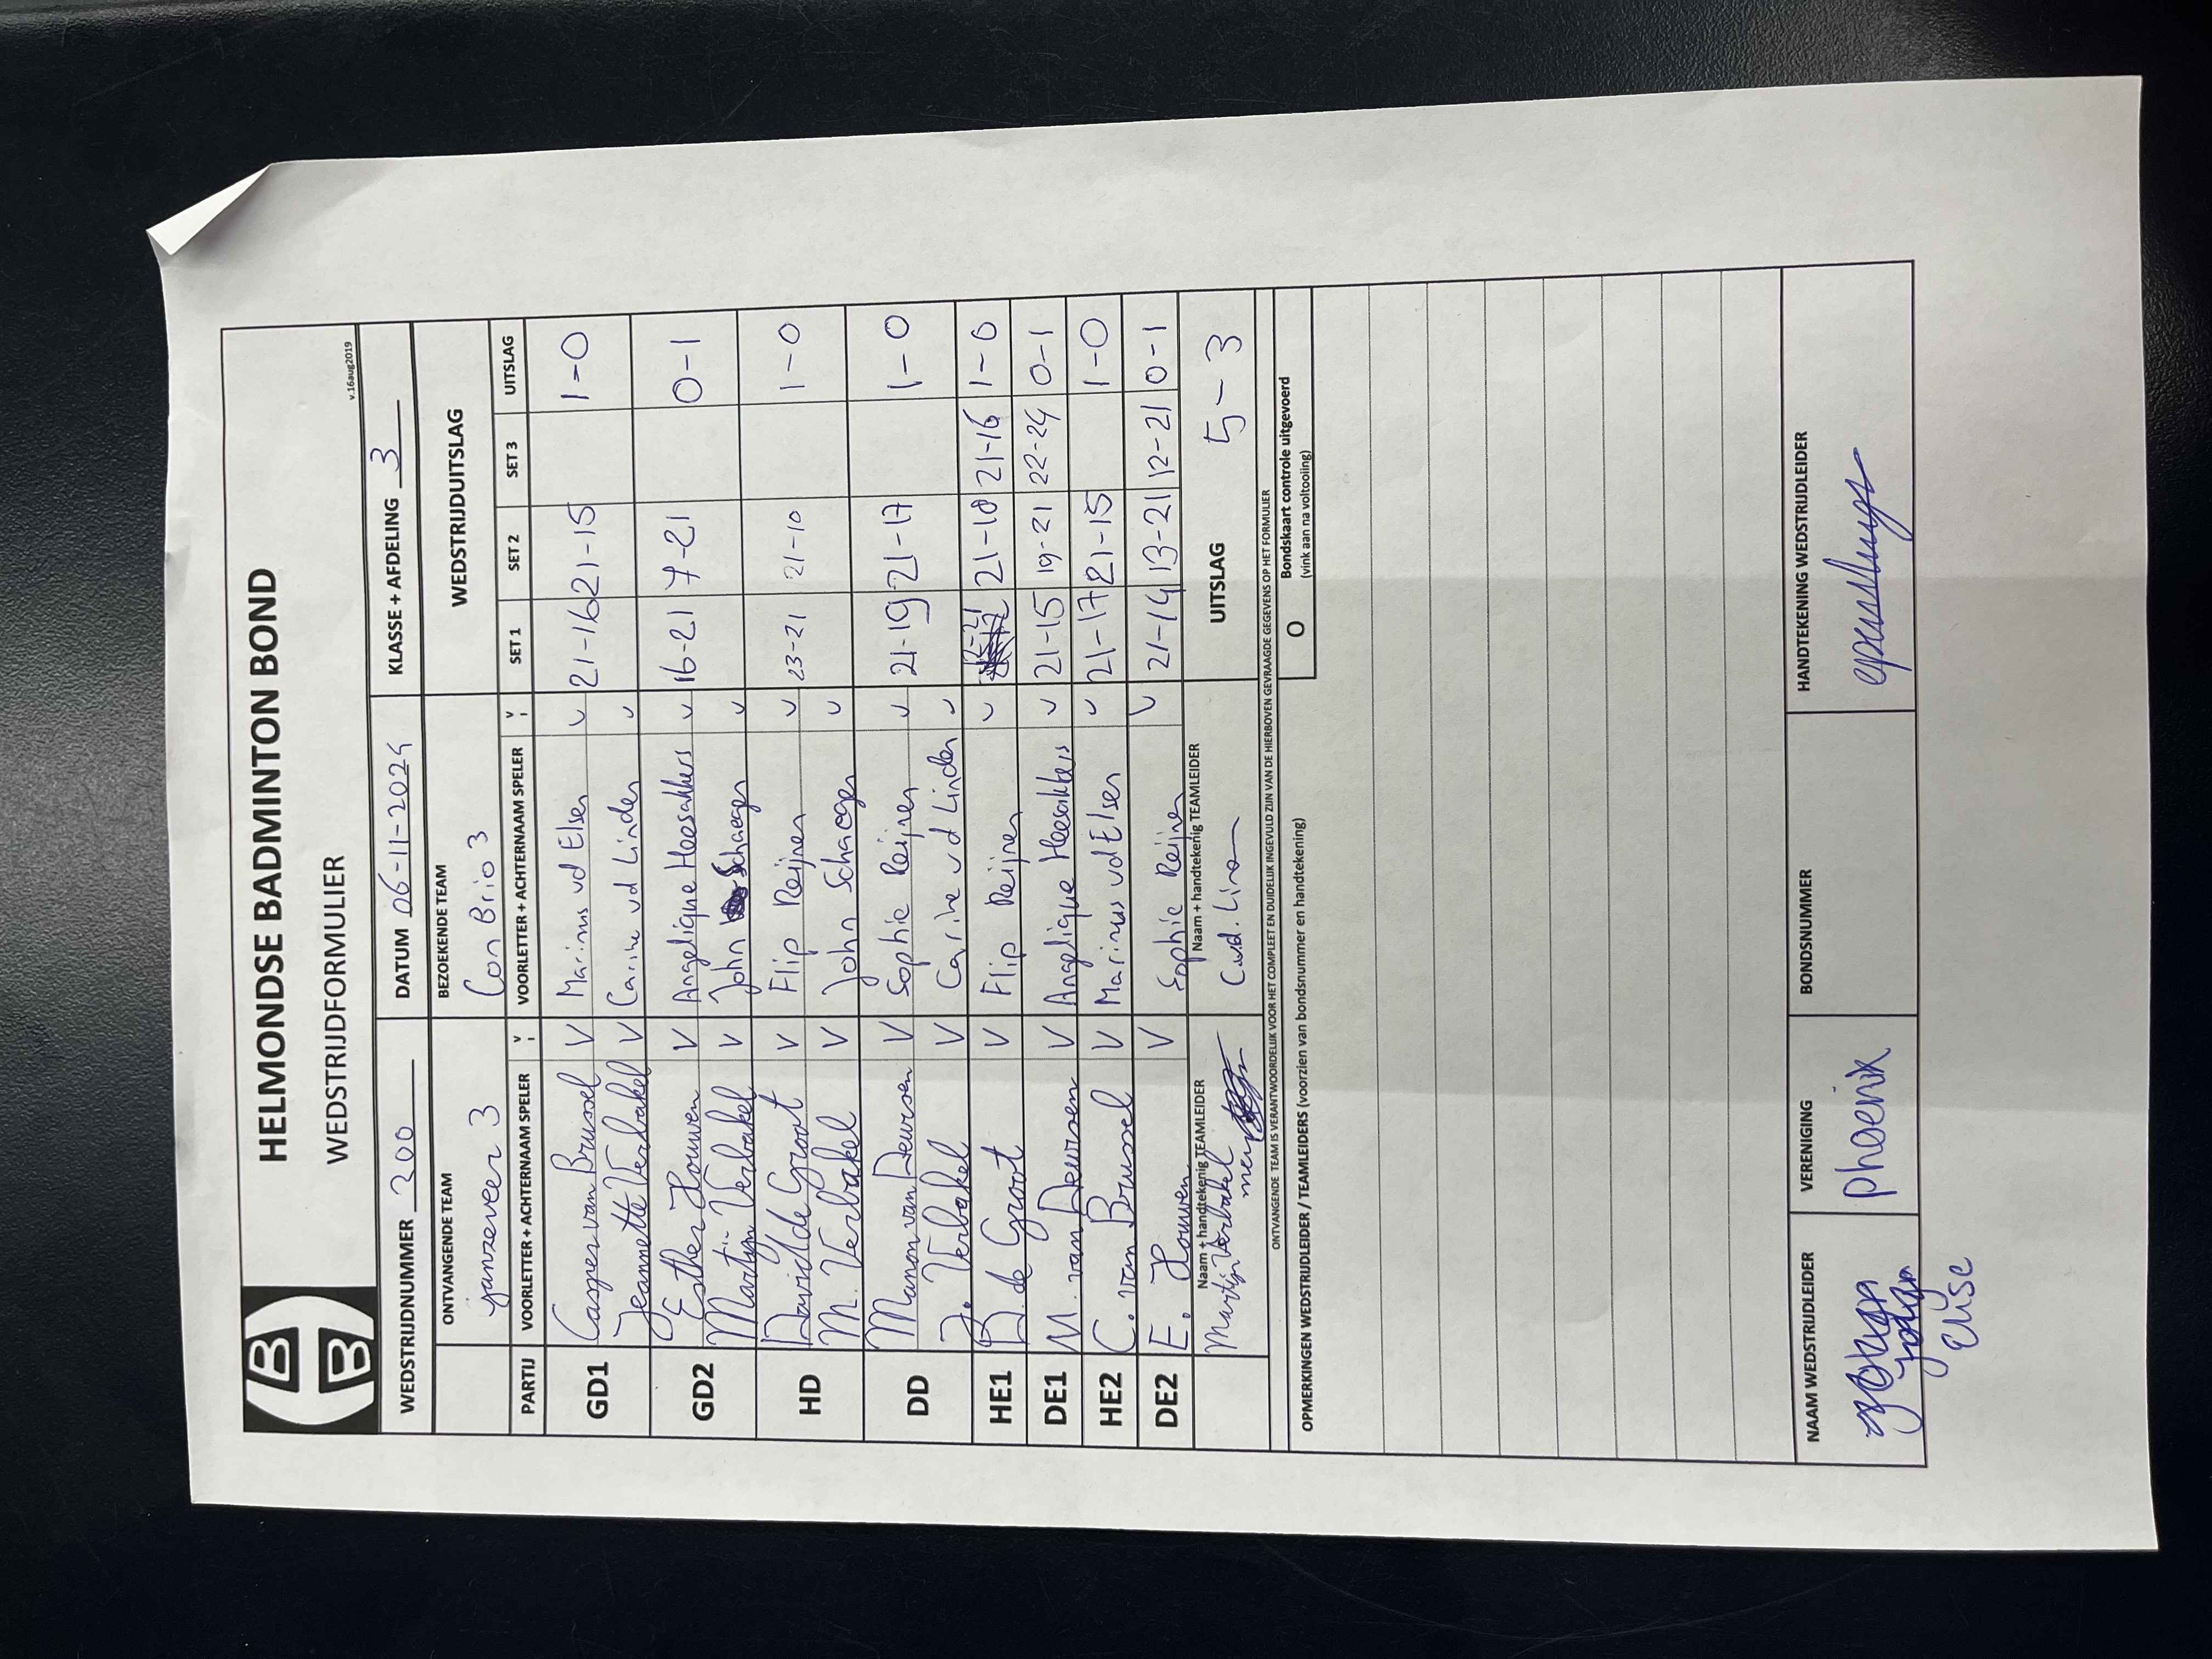 HELMONDSE BADMINTON BOND
WEDSTRIJDFORMULIER
v.16aug2019
WEDSTRIJDNUMMER 300 DATUM 06-11-2024 KLASSE + AFDELING 3
ONTVANGENDE TEAM BEZOEKENDE TEAM WEDSTRIJDUITSLAG
ganzeveer 3 Con Brio 3
PARTIJ VOORLETTER + ACHTERNAAM SPELER V VOORLETTER + ACHTERNAAM SPELER V SET 1 SET 2 SET 3 UITSLAG
GD1 Casper van Brussel V Marinus vd Elsen v 21-16 21-15 1-0
Jeannette Verbakel V Carine vd Linden v
GD2 Esther Houwen V Angelique Heesakkers v 16-21 7-21 0-1
Martijn Verbakel V John Schaeger v
HD David de Groot V Flip Reijnen v 23-21 21-10 1-0
M. Verbakel V John Schaeger v
DD Manon van Deursen V Sophie Reijnen v 21-19 21-17 1-0
J. Verbakel V Carine vd Linden v
HE1 D. de Groot V Flip Reijnen v 21-18 21-16 1-0
DE1 M. van Deursen V Angelique Heesakkers v 21-15 19-21 22-24 0-1
HE2 C. van Brussel V Marinus vd Elsen v 21-17 21-15 1-0
DE2 E. Houwen V Sophie Reijnen v 21-14 13-21 12-21 0-1
Naam + handtekenig TEAMLEIDER Naam + handtekenig TEAMLEIDER UITSLAG 5-3
Martijn Verbakel
ONTVANGENDE TEAM IS VERANTWOORDELIJK VOOR HET COMPLEET EN DUIDELIJK INGEVULD ZIJN VAN DE HIERBOVEN GEVRAAGDE GEGEVENS OP HET FORMULIER
OPMERKINGEN WEDSTRIJDLEIDER / TEAMLEIDERS (voorzien van bondsnummer en handtekening) O Bondskaart controle uitgevoerd
(vink aan na voltooling)
NAAM WEDSTRIJDLEIDER VERENIGING BONDSNUMMER HANDTEKENING WEDSTRIJDLEIDER
Phoenix
Elise